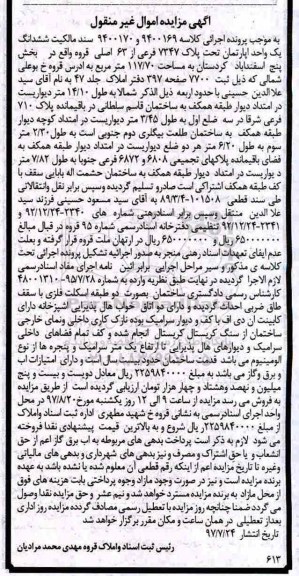 آگهی مزایده اموال غیر منقول
به موجب پرونده اجرائی کلاسه ۹۴۰۰۱۶۹ و ۹۴۰۰۱۷۰ سند مالکیت ششدانگ
یک واحد اپارتمان تحت پلاک ۷۳۴۷ فرعی از ۶۳ اصلی قروه واقع در بخش
پنج اسفنداباد کردستان به مساحت ۱۱۷/۷۰ متر مربع به ادرس قروه خ بوعلی
شمالی که ذیل ثبت ۷۷۰۰ صفحه ۳۹۷ دفتر املاک جلد ۴۷ به نام آقای سید
علاالدین حسینی با حدود اربعه ذیل الذکر شمالا به طول ۱۴/۱۰ متر دیواریست
در امتداد دیوار طبقه همکف به ساختمان قاسم سلطانی در باقیمانده پلاک ۷۱۰
فرعی شرقا در سه ضلع اول به طول ۳/۴۵ متر دیواریست در امتداد کوچه دیوار
طبقه همکف به ساختمان طلعت بیگلری دوم جنوبی است به طول ۲/۳۰ متر
سوم به طول ۶/۲۰ متر هر دو ضلع دیواریست در امتداد دیوار طبقه همکف به
فضای باقیمانده پلاکهای تجمیعی ۶۸۰۸ و ۶۸۷۲ فرعی جنوبا به طول ۷/۸۲ متر
دیواریست در امتداد دیوار طبقه همکف به ساختمان حشمت اله بابایی سقف با
کف طبقه همکف اشتراکی است صادر و تسلیم گردیده وسپس برابر نقل وانتقالاتی
طی سند قطعی ۱۰۱۵۰۸-۸۹/۳/۴ به آقای سید مسعود حسینی فرزند سید
علا الدین منتقل وسپس برابر اسناد رهنی شماره های ۲۳۴۰-۹۲/۱۲/۲۴ و
۲۳۴۱-۹۲/۱۲/۲۴ تنظیمی دفترخانه اسنادرسمی شماره ۹۵ قروه در قبال مبالغ
ریال در ارتهان ملت قروه قرار گرفته و بعلت
عدم ایفای تعهدات اسناد رهنی منجر به صدور اجرائیه تشکیل پرونده اجرائی تحت
کلاسه ی مذکور و سیر مراحل اجرایی برابر ائین نامه اجرای مفاد اسنادرسمی
لازم الاجرا گردیده در نهایت طبق نظریه وارده به شماره
کارشناس رسمی دادگستری ساختمان بصورت دو طبقه اسکلت فلزی با سقف
طاق ضربی احداث گردیده و دارای دو اتاق خواب هال پذیرایی آشپزخانه دارای
کابینت ان دی اف با کف و دیوار سرامیک بوده نازک کاری داخلی ونمای خارجی
ساختمان از سنگ کریستال کریستال انجام شده و کف تمام فضاهای داخلی
سرامیک و دیوارهای هال پذیرایی تا ارتفاع یک متر سرامیک و پنجره ها از نوع
الومینیوم می باشد قدمت ساختمان حدود بیست سال است و دارای امتیازات اب
و برق وگاز می باشد به مبلغ ۲۲۵۹۸۴۰۰۰۰ ریال معادل دویست و بیست و پنج
میلیون و نهصد وهشتاد و چهار هزار تومان ارزیابی گردیده است از طریق مزایده
به فروش می رسد مزایده از ساعت ۹ الی ۱۲ روز یکشنبه مورخ ۹۷/۸/۲۰ در محل
واحد اجرای اسنادرسمی به نشانی قروه خ شهید مطهری اداره ثبت اسناد واملاک
از مبلغ ۲۲۵۹۸۴۰۰۰۰ ریال شروع و به بالاترین قیمت پیشنهادی نقدا فروخته
می شود لازم به ذکر است پرداخت بدهی های مربوطه به اب برق گاز اعم از حق
انشعاب و یا حق اشتراک و مصرف و نیز بدهی های شهرداری و بدهی های مالیاتی
وغیره تا تاریخ مزایده اعم از اینکه رقم قطعی آن معلوم شده یا نشده باشد به عهده
برنده مزایده است و نیز در صورت وجود مازاد وجوه پرداختی بابت هزینه های فوق
از محل مازاد به برنده مزایده مسترد خواهد شد و نیم عشر و حق مزایده نقدا وصول
می گردد ضمنا چنانچه روز مزایده با تعطیل رسمی مصادف گردده مزایده روز اداری
بعداز تعطیلی در همان ساعت و مکان مقرر برگزار خواهد شد
تاریخ انتشار ۹۷/۷/۲۴
رئیس ثبت اسناد واملاک قروه مهدی محمد مرادیان
۶۱۳